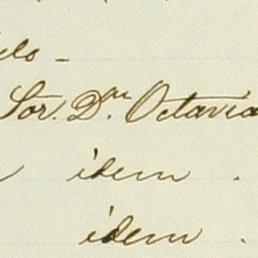 Sor. Dn. Octavia
idem .
idem .